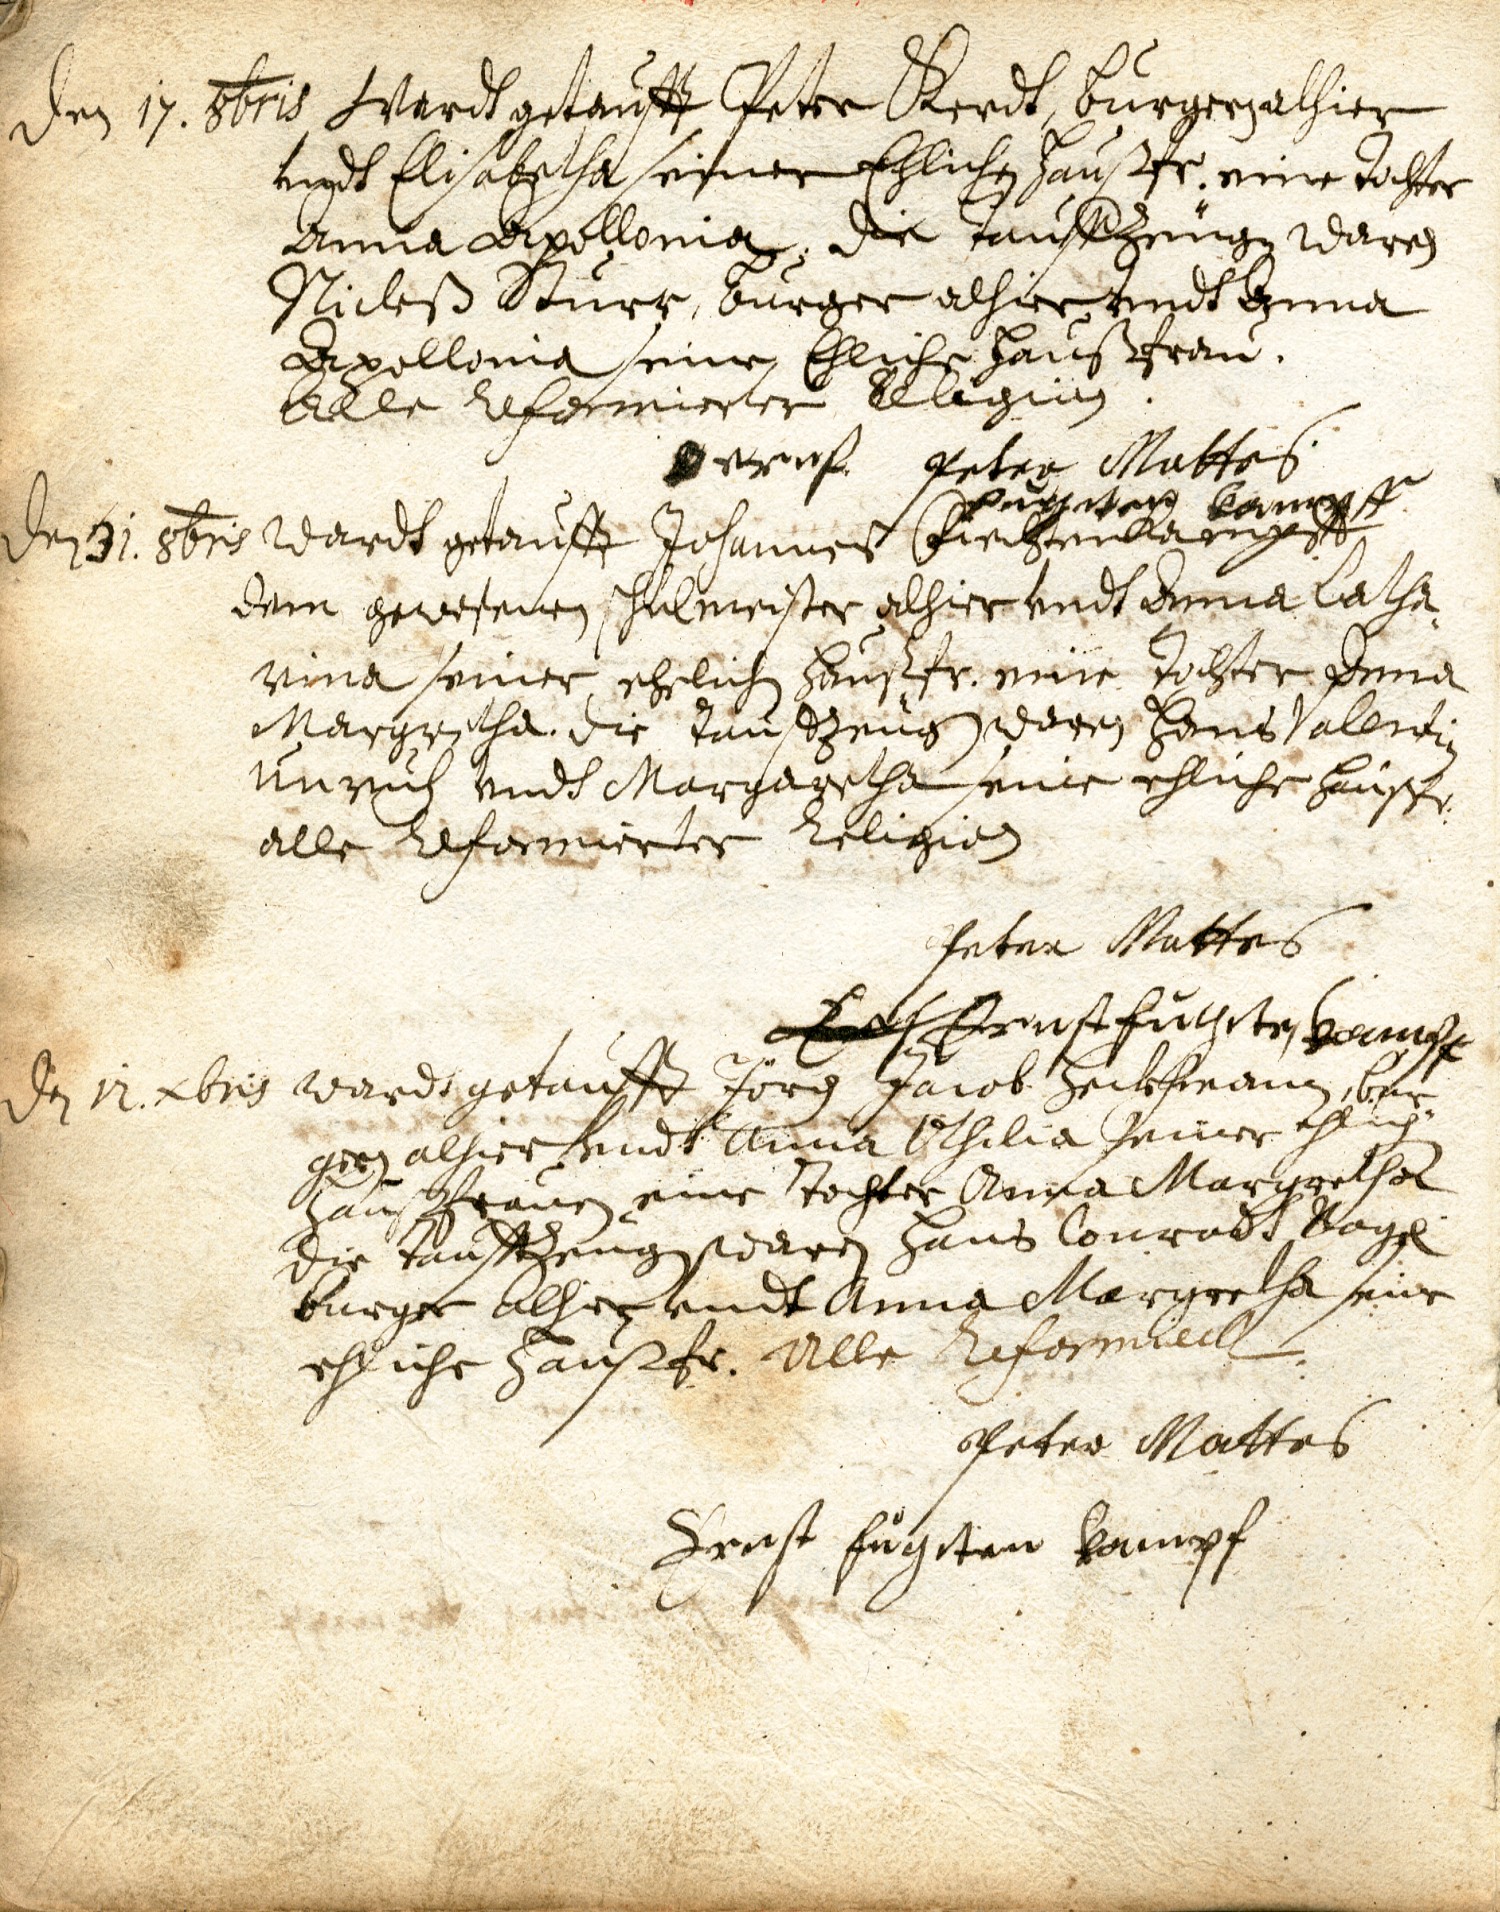 Den 17. 8bris Wardt getaufft Peter Kerdt, burgern alhier
undt Elisabetha seiner Ehlichen haußfr. eine tochter
Anna Apollonia, die tauffzeugen waren
Nicleß Sturr, burger alhier undt Anna
Apollonia seine Ehliche haußfrau.
Alle reformierter Religion.
Ernst Peter Mattes
fuchten kampff
Den 31. 8bris wardt getaufft Johannes
dem gewesenen schulmeister alhier undt Anna Catha
rina seiner ehelichen haußfr. eine tochter Anna
Margretha. die tauffzeugen waren Hans Valentin
Unruh undt Margaretha seine ehliche haußfr.
alle reformierter religion
Peter Mattes
Ernst fuchten kampff
Den 12. xbris wardt getaufft Jörg Jacob Heckmann, bur
gern alhier undt Anna Othilia seiner ehlichen
haußfrauen eine tochter Anna Margretha
die tauffzeugen waren Hans Conradt Vogel
burger alhier undt Anna Margretha seine
ehliche haußfr. Alle reformiert.
Peter Mattes
Ernst fuchten kampf